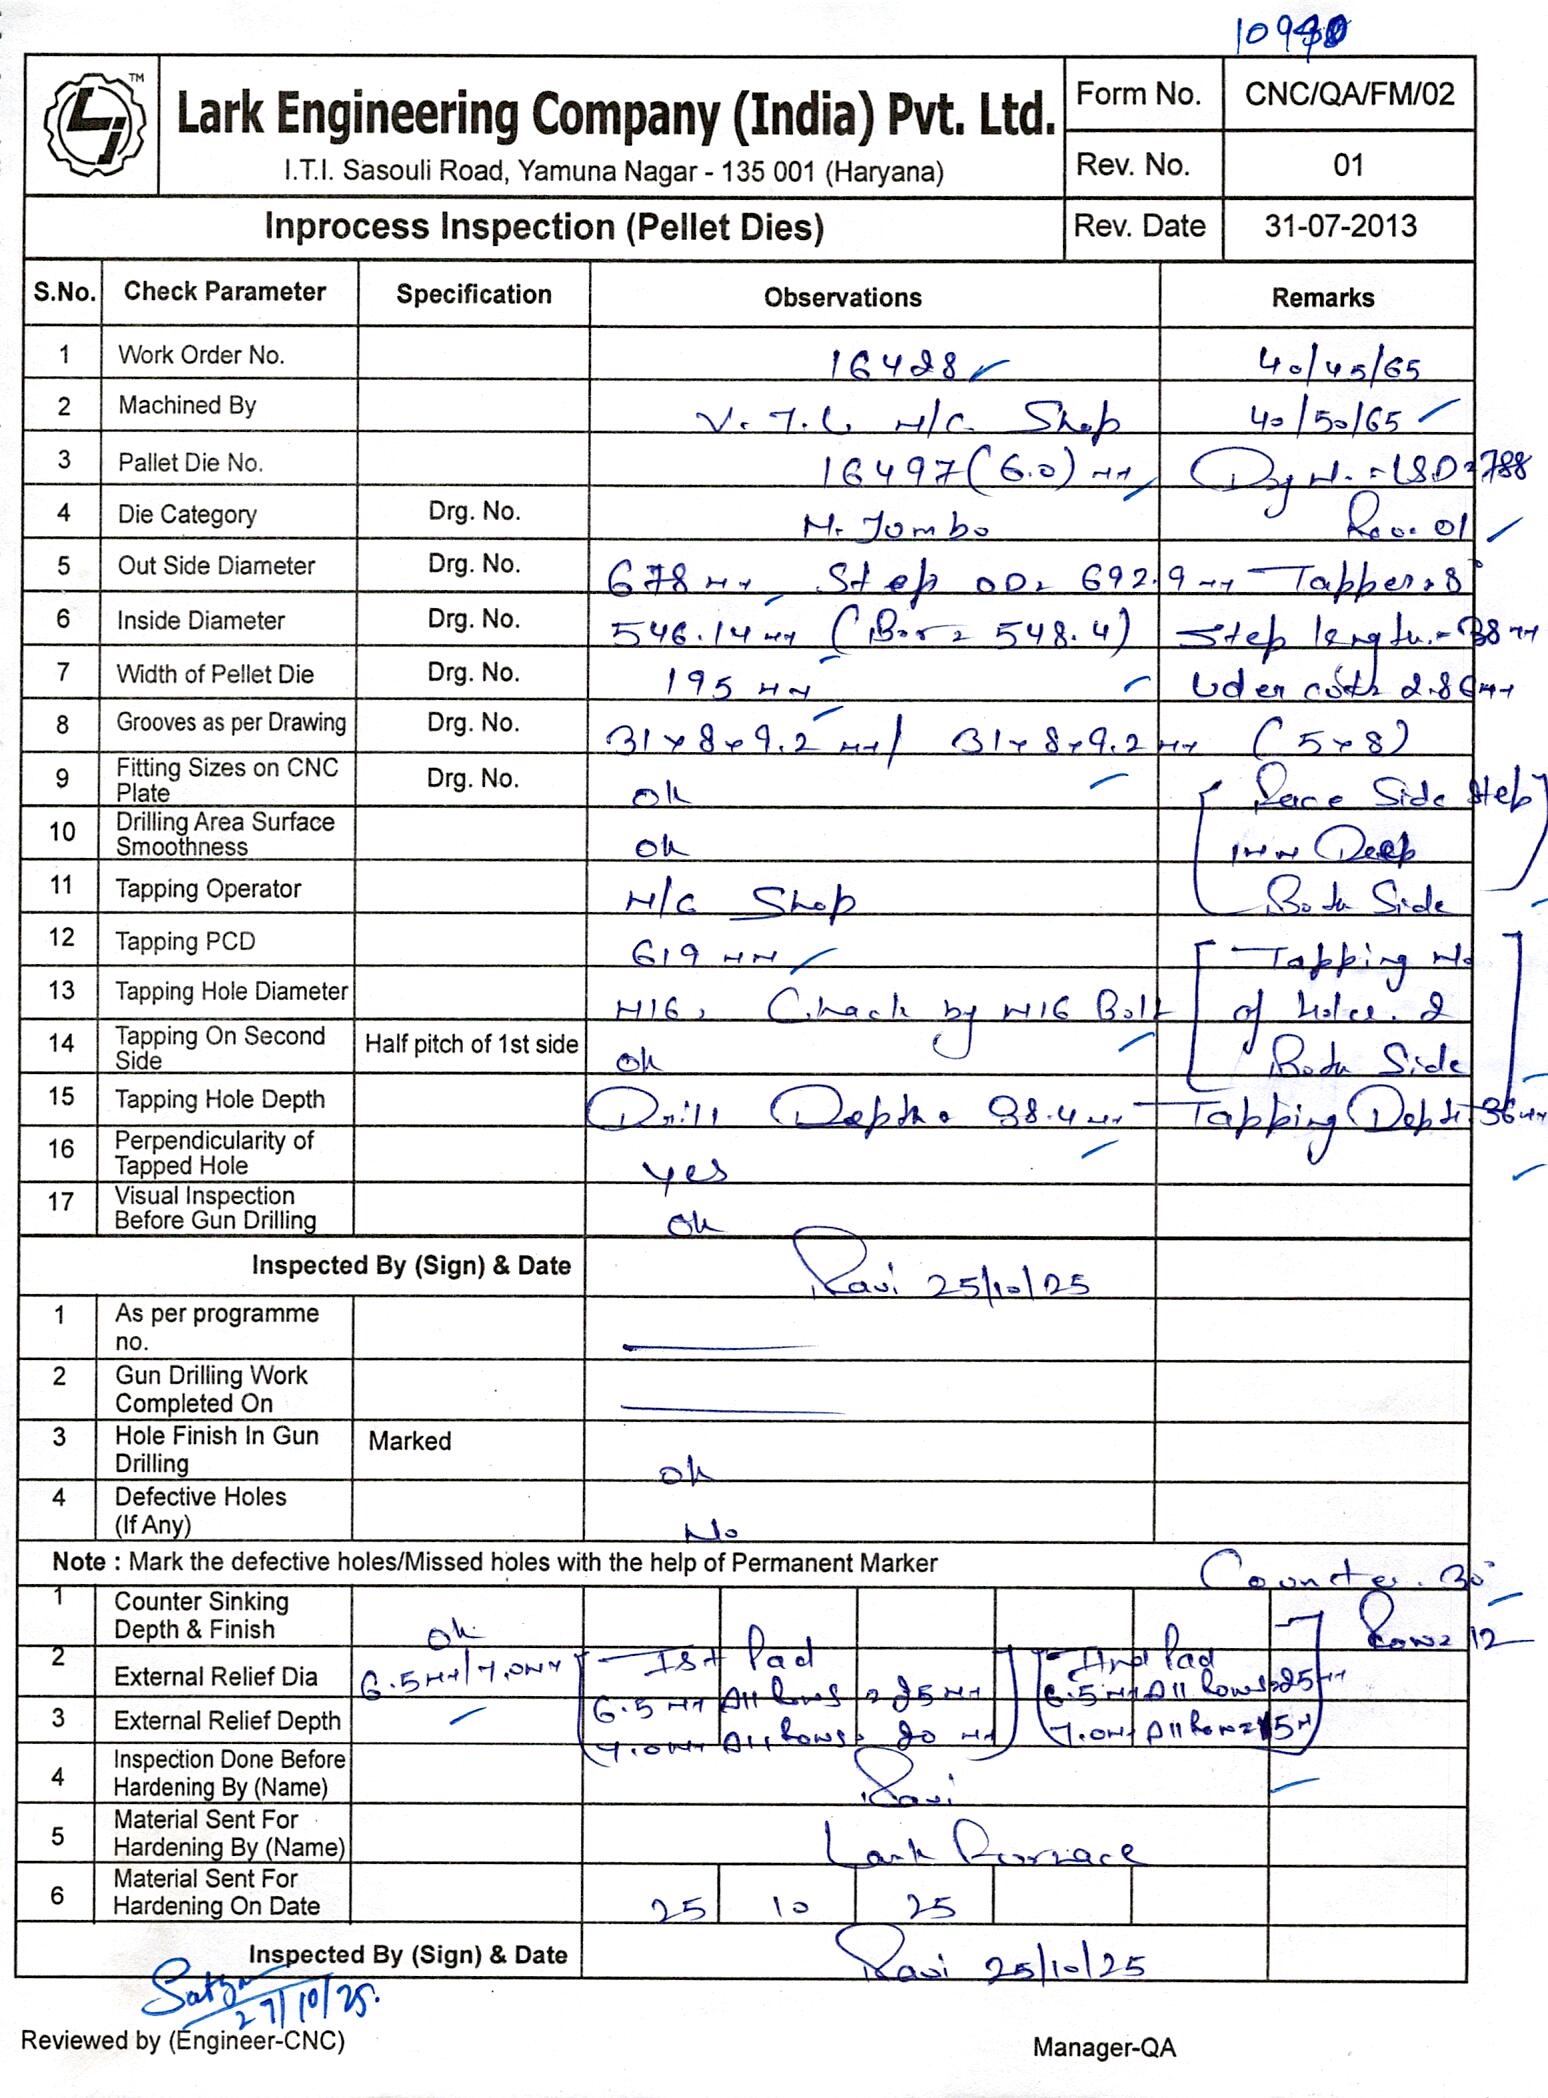 TM
Lark Engineering Company (India) Pvt. Ltd.
I.T.I. Sasouli Road, Yamuna Nagar - 135 001 (Haryana)
Form No. CNC/QA/FM/02
Rev. No. 01
Inprocess Inspection (Pellet Dies) Rev. Date 31-07-2013
S.No. Check Parameter Specification Observations Remarks
1 Work Order No. 16428 40/45/65
2 Machined By V.T.L M/C Shop 40/50/65
3 Pallet Die No. 16497 (6.0) MM Drg N. = LSD = 788
4 Die Category Drg. No. M. Jumbo Rev. 01
5 Out Side Diameter Drg. No. 678 MM Step OD = 692.9 MM Tapper = 8°
6 Inside Diameter Drg. No. 546.14 MM (Bor = 548.4) Step length = 38 MM
7 Width of Pellet Die Drg. No. 195 MM 2.86 MM
8 Grooves as per Drawing Drg. No. 31x8x9.2 MM / 31x8x9.2 MM (5x8)
9 Fitting Sizes on CNC Plate Drg. No. Ok Side Step
10 Drilling Area Surface Smoothness Ok 1MM Deep
11 Tapping Operator M/C Shop Both Side
12 Tapping PCD 619 MM Tapping No
13 Tapping Hole Diameter M16, Check by M16 Bolt of holes. 2
14 Tapping On Second Side Half pitch of 1st side Ok Both Side
15 Tapping Hole Depth Drill Depth = 38.4 MM Tapping Depth 36 MM
16 Perpendicularity of Tapped Hole Yes
17 Visual Inspection Before Gun Drilling Ok
Inspected By (Sign) & Date Ravi 25/10/25
1 As per programme no.
2 Gun Drilling Work Completed On
3 Hole Finish In Gun Drilling Marked Ok
4 Defective Holes (If Any) No
Note : Mark the defective holes/Missed holes with the help of Permanent Marker
Counter. 30°
1 Counter Sinking Depth & Finish Ok Row = 12
2 External Relief Dia 6.5 MM/7.0 MM Ist Pad IInd Pad
6.5 MM All Rows = 25 MM 6.5 MM All Rows = 25 MM
3 External Relief Depth 7.0 MM All Rows = 20 MM 7.0 MM All Row = 15 M
4 Inspection Done Before Hardening By (Name) Ravi
5 Material Sent For Hardening By (Name) Lark Furnace
6 Material Sent For Hardening On Date 25 10 25
Inspected By (Sign) & Date Ravi 25/10/25
27/10/25.
Reviewed by (Engineer-CNC) Manager-QA